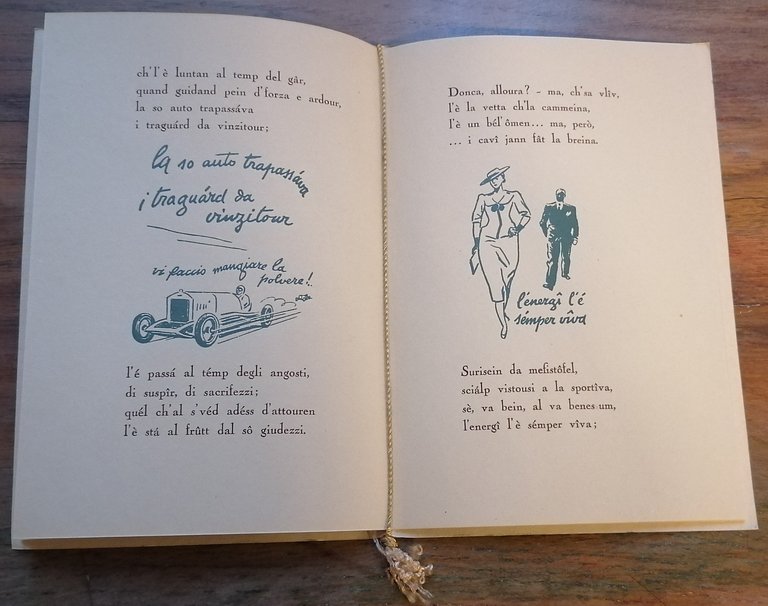 ch'l'è luntan al temp del gâr,
quand guidand pein d'forza e ardour,
la so auto trapassáva
i traguárd da vinzitour;
la so auto trapassáva
i traguárd da
vinzitour
vi faccio mangiare la
polvere!..
l'é passá al témp degli angosti,
di suspîr, di sacrifezzi;
quél ch'al s'véd adéss d'attouren
l'è stá al frûtt dal sô giudezzi.
Donca, alloura? - ma, ch'sa vlîv,
l'è la vetta ch'la cammeina,
l'è un bél'ômen... ma, però,
... i cavî jann fât la breina.
l'énergî l'é
sémper vîva
Suriscin da mefistôfel,
sciálp vistousi a la sportîva,
sè, va bein, al va benes um,
l'energî l'è sémper vîva;